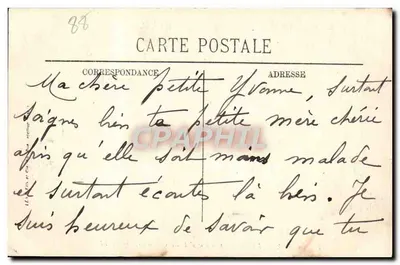 88
CARTE POSTALE
CORRESPONDANCE ADRESSE
Ma chère petite Yvonne, surtout
soignes bien ta petite mère chérie
CPARPHIL
afin qu'elle soit moins malade
et surtout écoutes là bien. Je
suis heureux de savoir que tu